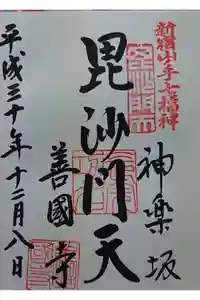 新宿山ノ手七福神
神楽坂
毘沙門天
善國寺
平成三十年十二月八日